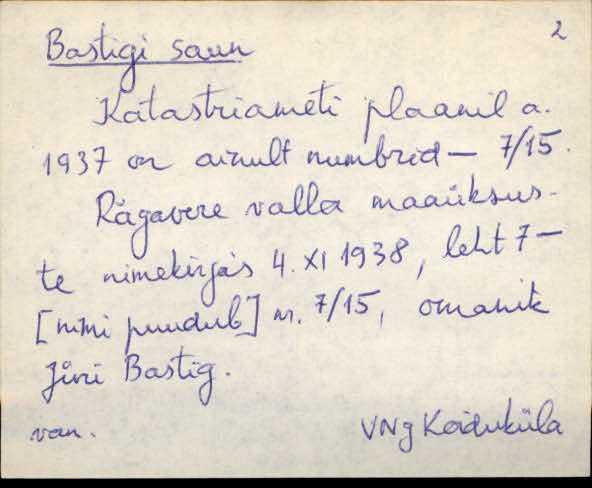 2
Bastigi saun
Katastriameti plaanil a.
1937 on ainult numbrid — 7/15.
Rägavere valla maaüksus-
te nimekirjas 4. XI 1938, leht 7 —
[nimi puudub] nr. 7/15, omanik
Jüri Bastig.
van. VNg Koiduküla